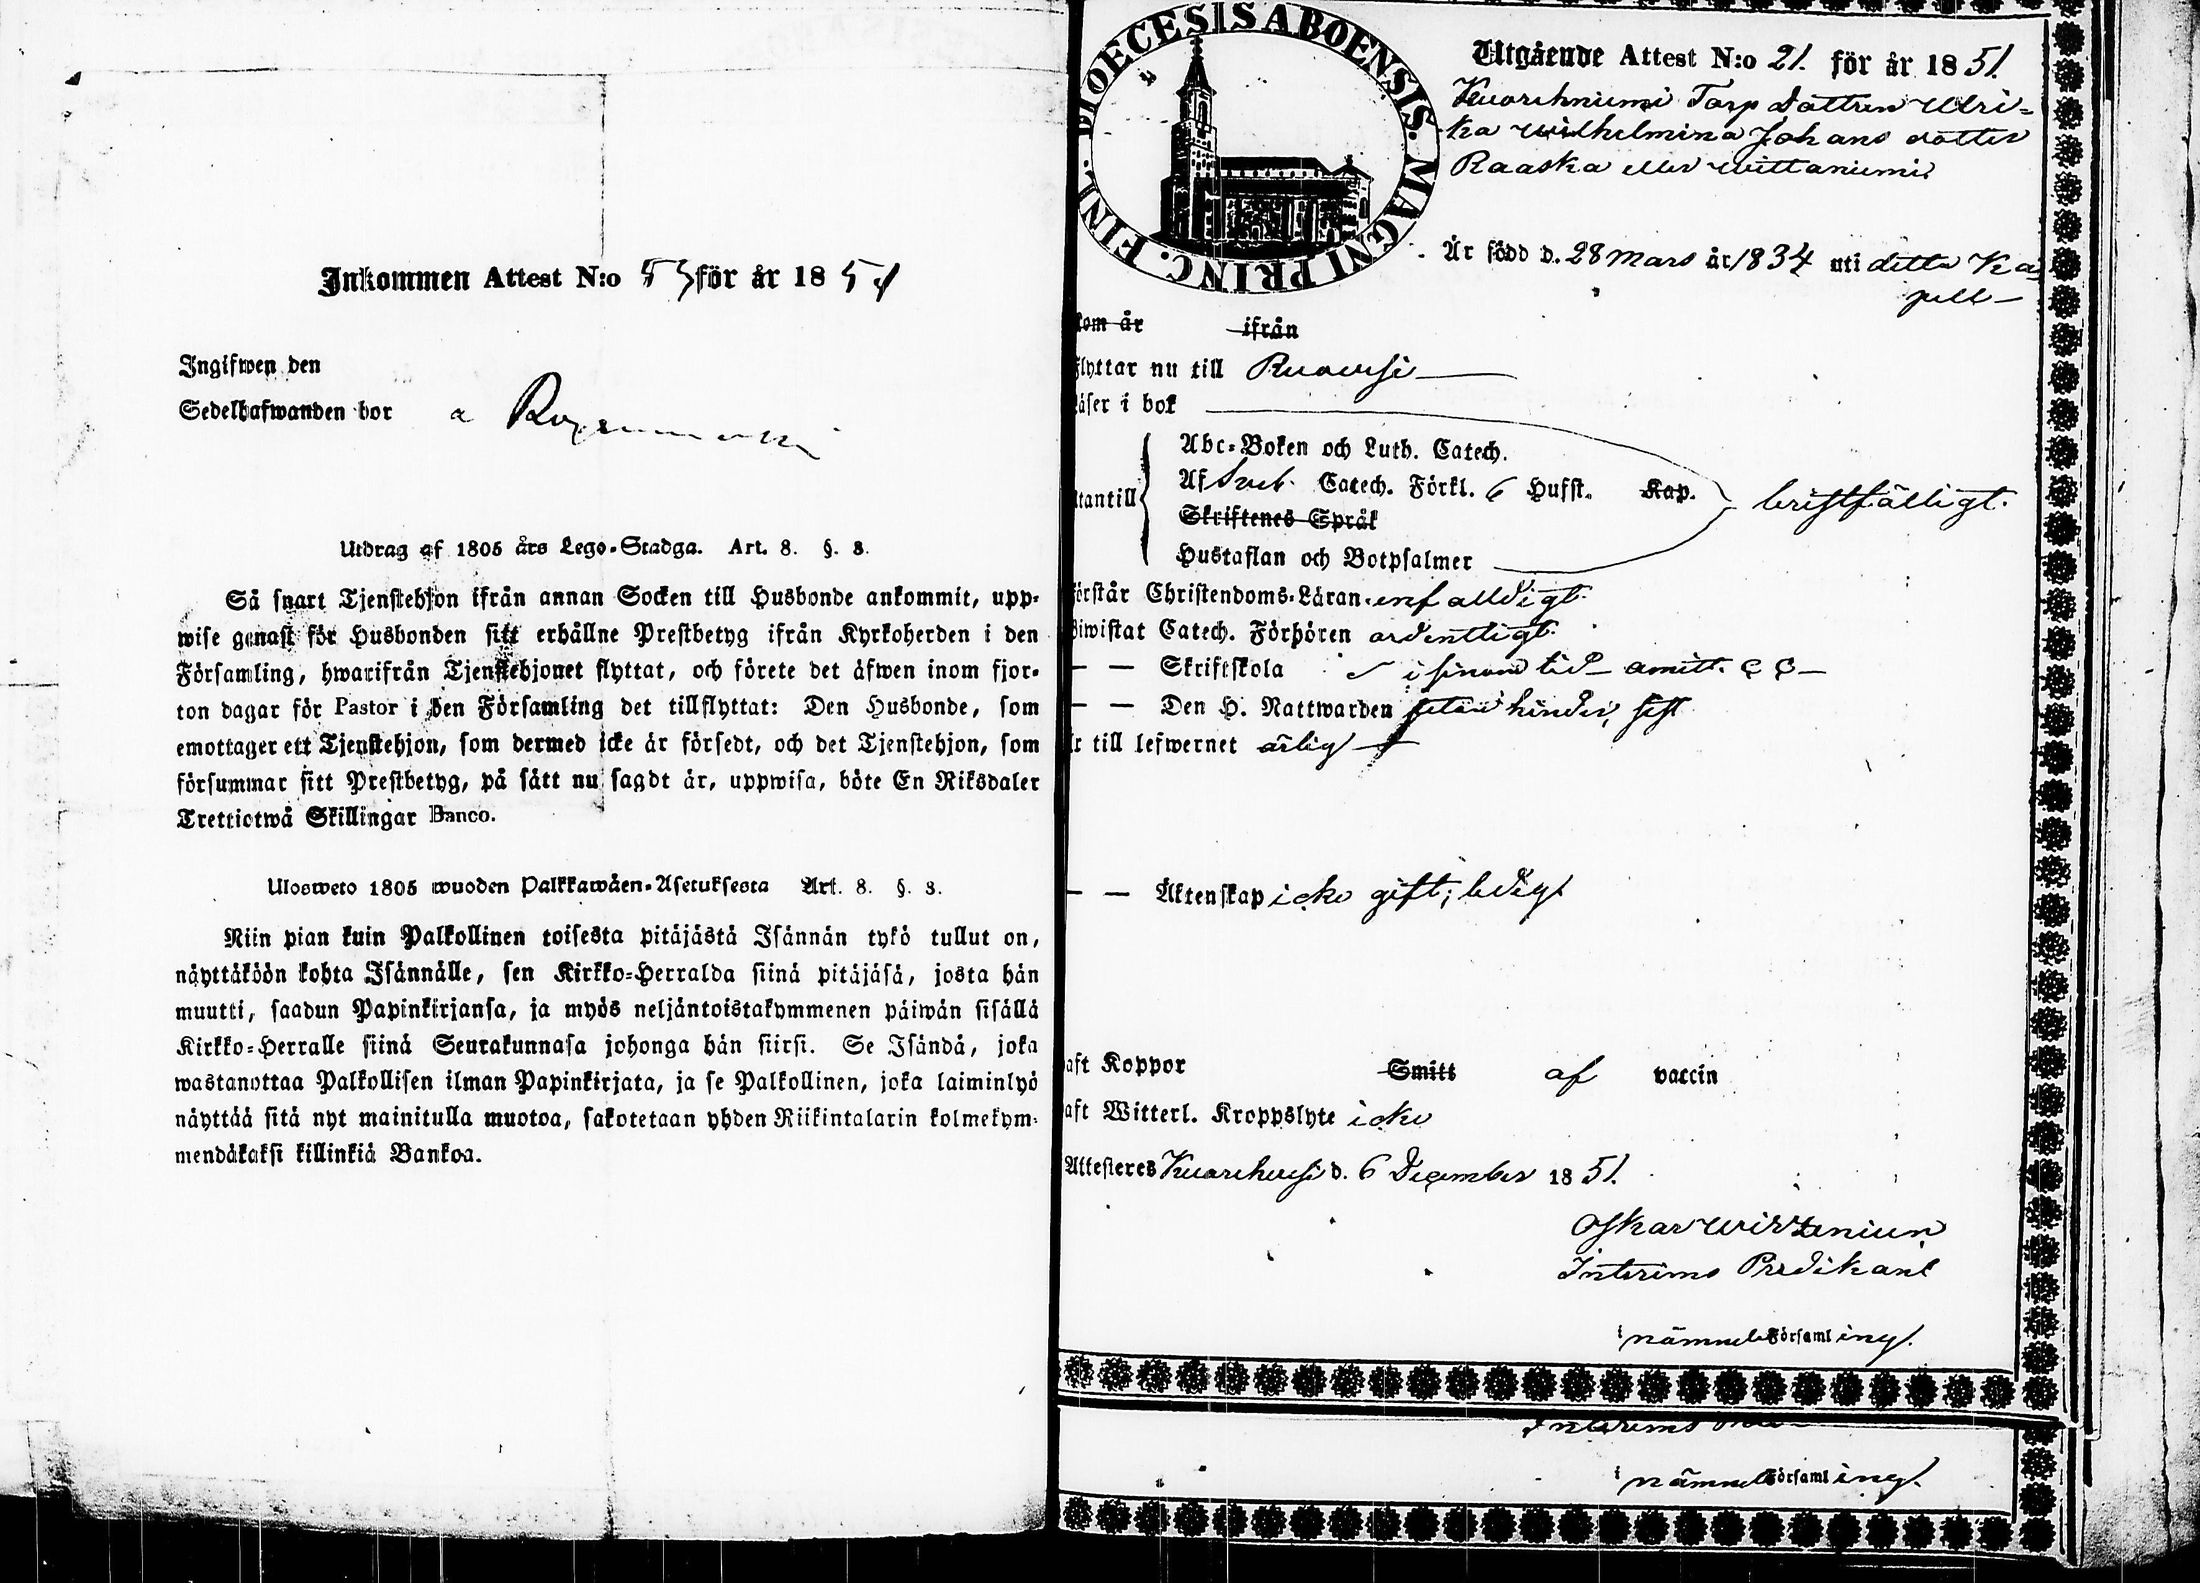 Inkommen Attest N:o 53 för år 1851
Ingifwen den
Sedelhafwanden bor a
Utdrag af 1805 års Lego-Stadga. Art. 8. §. 3.
Så snart Tjenstehjon ifrån annan Socken till Husbonde ankommit, upp-
wise genast för Husbonden sitt erhållne Prestbetyg ifrån Kyrkoherden i den
Församling, hwarifrån Tjenstehjonet flyttat, och förete det äfwen inom fjor-
ton dagar för Pastor i den Församling det tillflyttat: Den Husbonde, som
emottager ett Tjenstehjon, som dermed icke är försedt, och det Tjenstehjon, som
försummar sitt Prestbetyg, på sätt nu sagdt är, uppwisa, böte En Riksdaler
Trettiotwå Skillingar Banco.
Ulosweto 1805 wuoden Palkkawäen-Asetuksesta Art. 8. §. 3.
Niin pian kuin Palkollinen toisesta pitäjästä Isännän tykö tullut on,
näyttäköön kohta Isännälle, sen Kirkko-Herralda siinä pitäjäsä, josta hän
muutti, saadun Papinkirjansa, ja myös neljäntoistakymmenen päiwän sisällä
Kirkko-Herralle siinä Seurakunnasa johonga hän siirsi. Se Isändä, joka
wastanottaa Palkollisen ilman Papinkirjata, ja se Palkollinen, joka laiminlyö
näyttää sitä nyt mainitulla muotoa, sakotetaan yhden Riikintalarin kolmekym-
mendäkaksi killinkiä Bankoa.
DIOECESIS ABOENSIS. MAGNI PRINC. FINL.
Utgående Attest N:o 21. för år 1851.
Kuarehniemi Torp dottren Ulri-
ka Wilhelmina Johans dotter
Raaska eller Wittaniemi
Är född d. 28 Mars år 1834 uti detta Ka
pell
kom år ifrån
Flyttar nu till Ruowesi
Läser i bok
Abc-Boken och Luth. Catech.
Af Sveb. Catech. Förkl. 6 Hufst. Kap.
Utantill bristfälligt.
Skriftenes Språk
Hustaflan och Botpsalmer
Förstår Christendoms-Läran enfalldigt.
Biwistat Catech. Förhören ordentligt.
— — Skriftskola i sinom tid admitt.
— — Den H. Nattwarden utan hinder, sist
Är till lefwernet ärlig
— — Äktenskap icke gift; ledig
Haft Koppor Smitt af vaccin
Haft Witterl. Kroppslyte icke
Attesteres Kuorehwesi d. 6 December 1851.
Oskar Wirzenius
Interims Predikant
i nämnde Församling.
Interims
i nämnde Församling.